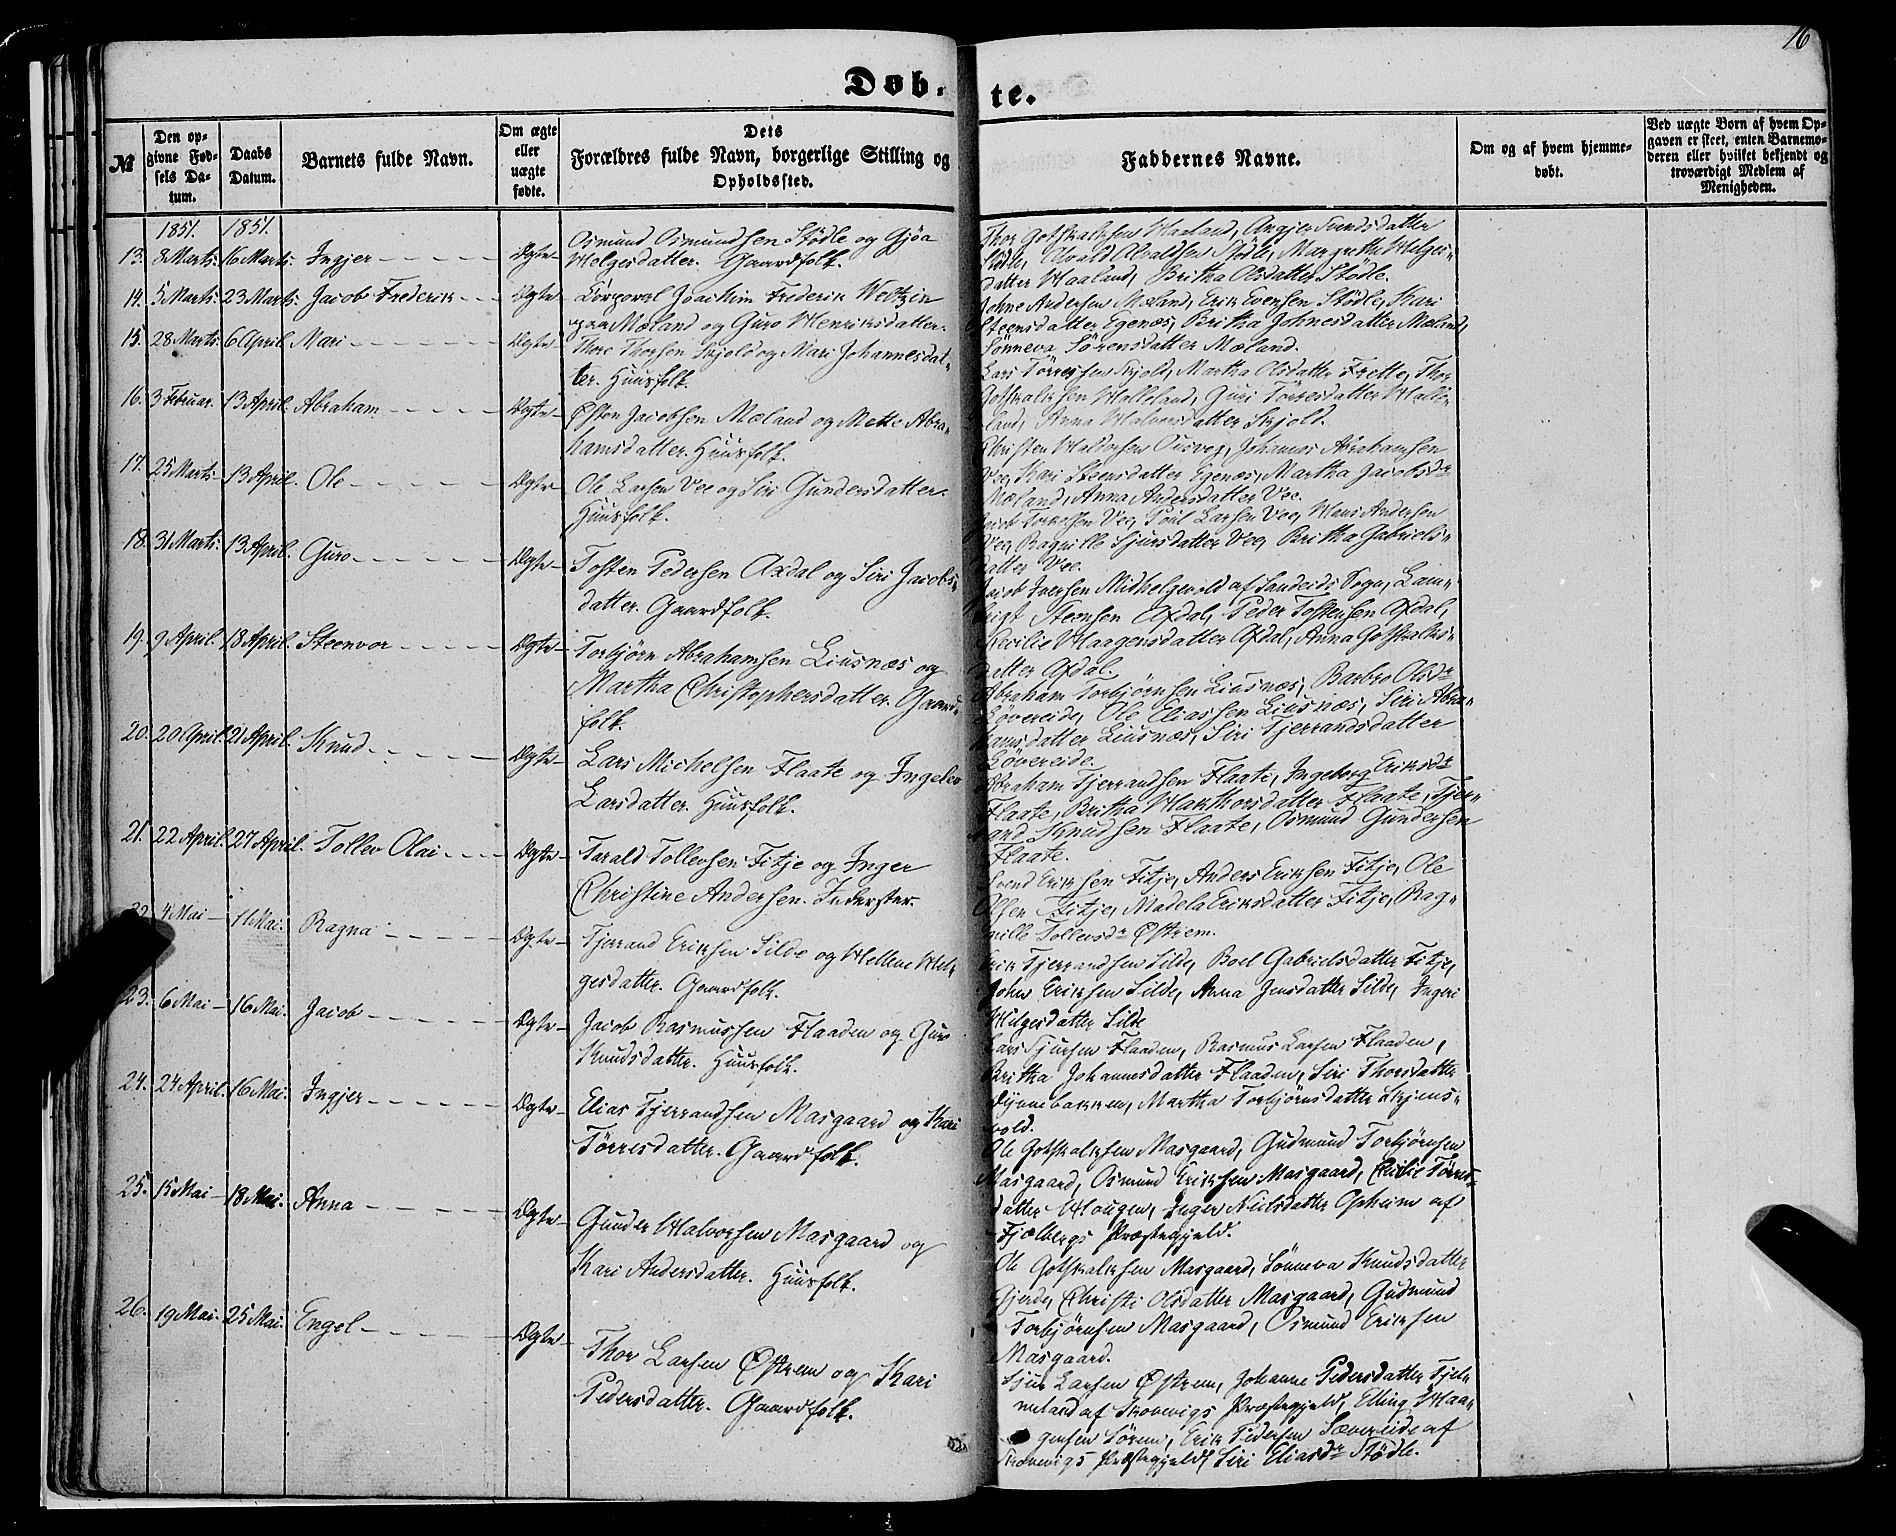 16
Døb-te.
№
Den op-
givne Fød-
sels Da-
tum.
Daabs
Datum.
Barnets fulde Navn.
Om ægte
eller
uægte
fødte.
Dets
Forældres fulde Navn, borgerlige Stilling og
Opholdssted.
Faddernes Navne.
Om og af hvem hjemme-
døbt.
Ved uægte Børn af hvem Op-
gaven er skeet, enten Barnemo-
deren eller hvilket bekjendt og
troværdigt Medlem af
Menigheden.
1851. 1851.
13. 8 Marts. 16 Marts. Ingjer Ægte
Osmund Osmundsen Stødle og Gjøa
Helgesdatter. Gaardfolk.
Thor Gotskalksen Haaland, Angjer Svendsdatter
Stødle, Alvald Alvaldsen Stødle, Margrethe Helges-
datter Haaland, Britha Olsdatter Stødle.
14. 5 Marts. 23 Marts. Jacob Frederik Ægte
Corporal Joachim Frederik Weltzin
paa Mæland og Guro Henriksdatter.
Johne Andersen Mæland, Erik Evensen Stødle, Kari
Steensdatter Egenæs, Britha Johnesdatter Mæland,
Sønneva Sørensdatter Mæland.
15. 28 Marts. 6 April. Mari Ægte
Thore Thorsen Skjold og Mari Johannesdat-
ter. Huusfolk.
Lars Tørresen Skjold, Martha Olsdatter Frette, Thor
Gotskalksen Halleland, Guri Tørresdatter Halle-
land, Anna Halvorsdatter Skjold.
16. 3 Februar. 13 April. Abraham Ægte
Østen Jacobsen Mæland og Mette Abra-
hamsdatter. Huusfolk.
Christen Haldorsen Ousvog, Johannes Abrahamsen
Vee, Kari Steensdatter Egenæs, Martha Jacobsdr
Mæland, Anna Andersdatter Vee.
17. 25 Marts. 13 April. Ole Ægte
Ole Larsen Vee og Siri Gundersdatter.
Huusfolk.
Jacob Torkelsen Vee, Poul Larsen Vee, Hans Andersen
Vee, Ragnille Sjursdatter Vee, Britha Gabriels-
datter Vee.
18. 31 Marts. 13 April. Guro Ægte
Tosten Pedersen Axdal og Siri Jacobs-
datter. Gaardfolk.
Jacob Iversen Midhelgevold af Sandeids Sogn, Lam-
brigt Steensen Axdal, Peder Tostensen Axdal,
Cecilie Haagensdatter Axdal, Anna Gotskalks-
datter Axdal.
19. 9 April. 18 April. Steenvor Ægte
Torbjørn Abrahamsen Liusnæs og
Martha Christophersdatter. Gaard-
folk.
Abraham Torbjørnsen Liusnæs, Barbro Olsdr
Løvereide, Ole Eliassen Liusnæs, Siri Abra-
hamsdatter Liusnæs, Siri Tjerrandsdatter
Løvereide.
20. 20 April. 21 April. Knud Ægte
Lars Michelsen Flaate og Ingebor
Larsdatter. Huusfolk.
Abraham Tjerrandsen Flaate, Ingeborg Eriksdr
Flaate, Britha Hakthorsdatter Flaate, Tjer-
rand Knudsen Flaate, Osmund Gundersen
Flaate.
21. 22 April. 27 April. Tollev Olai Ægte
Tarald Tollevsen Fitje og Inger
Christine Andersen. Inderster.
Svend Eriksen Fitje, Anders Eriksen Fitje, Ole
Olsen Fitje, Madela Eriksdatter Fitje, Rag-
nille Tollevsdr Østrem.
22. 4 Mai 11 Mai. Ragna Ægte
Tjerrand Eriksen Silde og Hellene Hel-
gesdatter. Gaardfolk.
Erik Tjerrandsen Silde, Boel Gabrielsdatter Fitje,
John Eriksen Silde, Anna Jensdatter Silde, Ingeri
Helgesdatter Silde
23. 6 Mai 16 Mai. Jacob Ægte
Jacob Rasmussen Flaaden og Guro
Knudsdatter. Huusfolk.
Lars Sjursen Flaaden, Rasmus Larsen Flaaden,
Britha Johannesdatter Flaaden, Siri Thorsdatter
Dynnebakken, Martha Torbjørnsdatter Skjens-
vold.
24. 24 April. 16 Mai. Ingjer Ægte
Elias Tjerrandsen Masgaard og Kari
Tørresdatter. Gaardfolk.
Ole Gotskalksen Masgaard, Gudmund Torbjørnsen
Masgaard, Osmund Eriksen Masgaard, Cecilie Tørres-
datter Hougen, Inger Neilsdatter Opheim af
Fjælbergs Præstegjeld.
25. 15 Mai 18 Mai. Anna Ægte
Gunder Halvorsen Masgaard og
Kari Andersdatter. Huusfolk.
Ole Gotskalksen Masgaard, Sønneva Knudsdatter
Gjerde, Christi Olsdatter Masgaard, Gudmund
Torbjørnsen Masgaard, Osmund Eriksen
Masgaard.
26. 19 Mai. 25 Mai. Engel Ægte
Thor Larsen Østrem og Kari
Pedersdatter. Gaardfolk.
Sjur Larsen Østrem, Johanne Pedersdatter Tjel-
meland af Skonevigs Præstegjeld, Elling Haa-
gensen Sørene, Erik Pedersen Sævereide af
Skonevigs Præstegjeld, Siri Eliasdr Stødle.